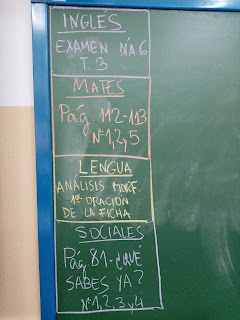 INGLÉS
EXAMEN DÍA 6
T.3
MATES
Pág. 112-113
Nº 1, 2, 5
LENGUA
ANÁLISIS MORF.
1ª ORACIÓN
DE LA FICHA
SOCIALES
Pág 81-¿QUÉ
SABES YA?
Nº 1, 2, 3 y 4